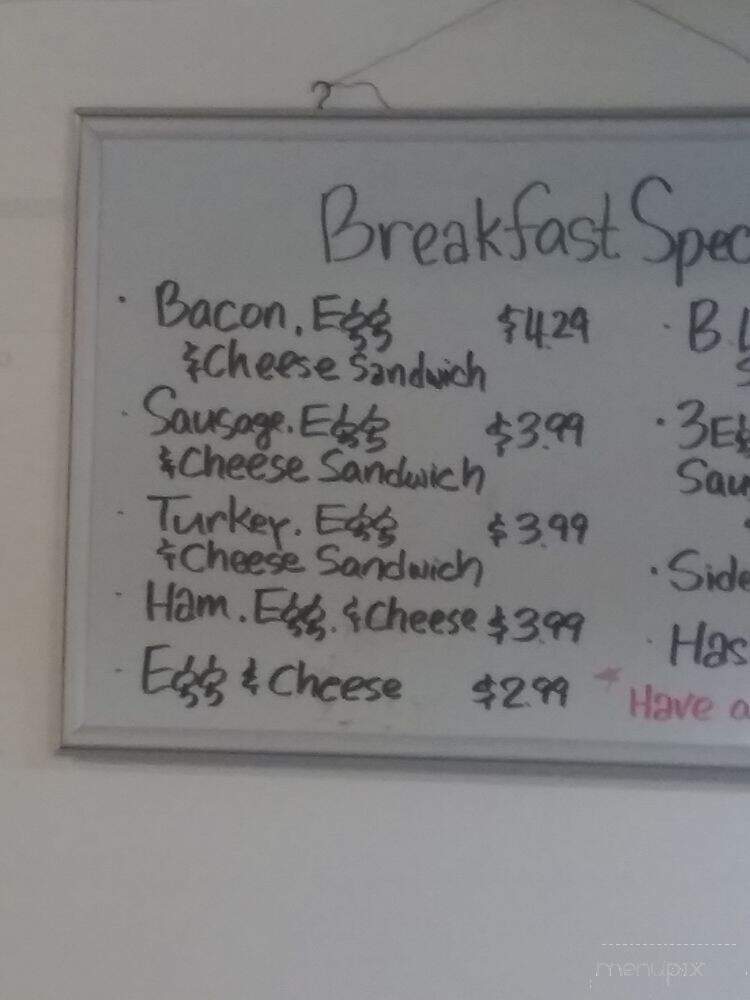 Breakfast Spec
· Bacon, Egg $4.29
& Cheese Sandwich
· Sausage, Egg $3.99
& Cheese Sandwich
· Turkey, Egg $3.99
& Cheese Sandwich
· Ham, Egg, & Cheese $3.99
· Egg & Cheese $2.99
· B.L
· 3 Egg
Sau
· Side
· Has
* Have a
menupix